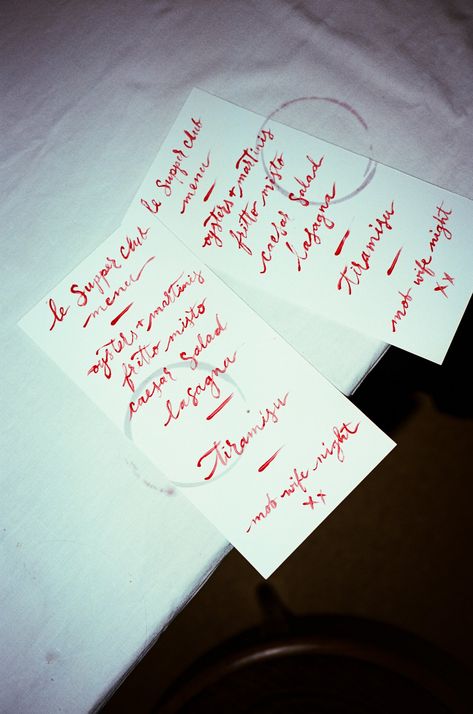 le Supper Club
menu
oysters + martinis
fritto misto
caesar Salad
lasagna
tiramisu
mob wife night
xx
le Supper Club
menu
oysters + martinis
fritto misto
caesar Salad
lasagna
tiramisu
mob wife night
xx